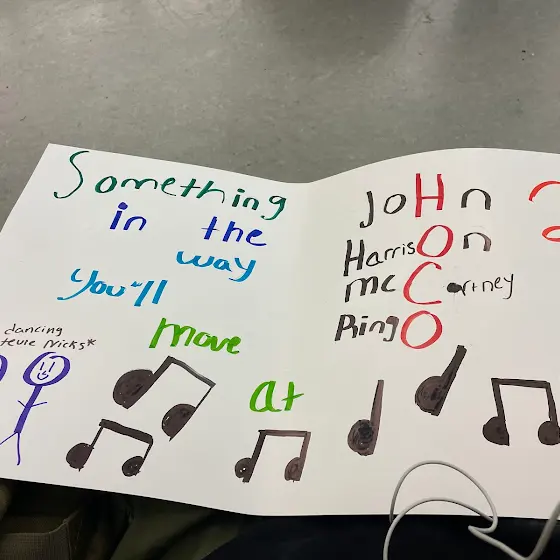 Something
in the
way
you'll
move
at
dancing
Nicks*
JoHn
HarrisOn
mcCartney
RingO